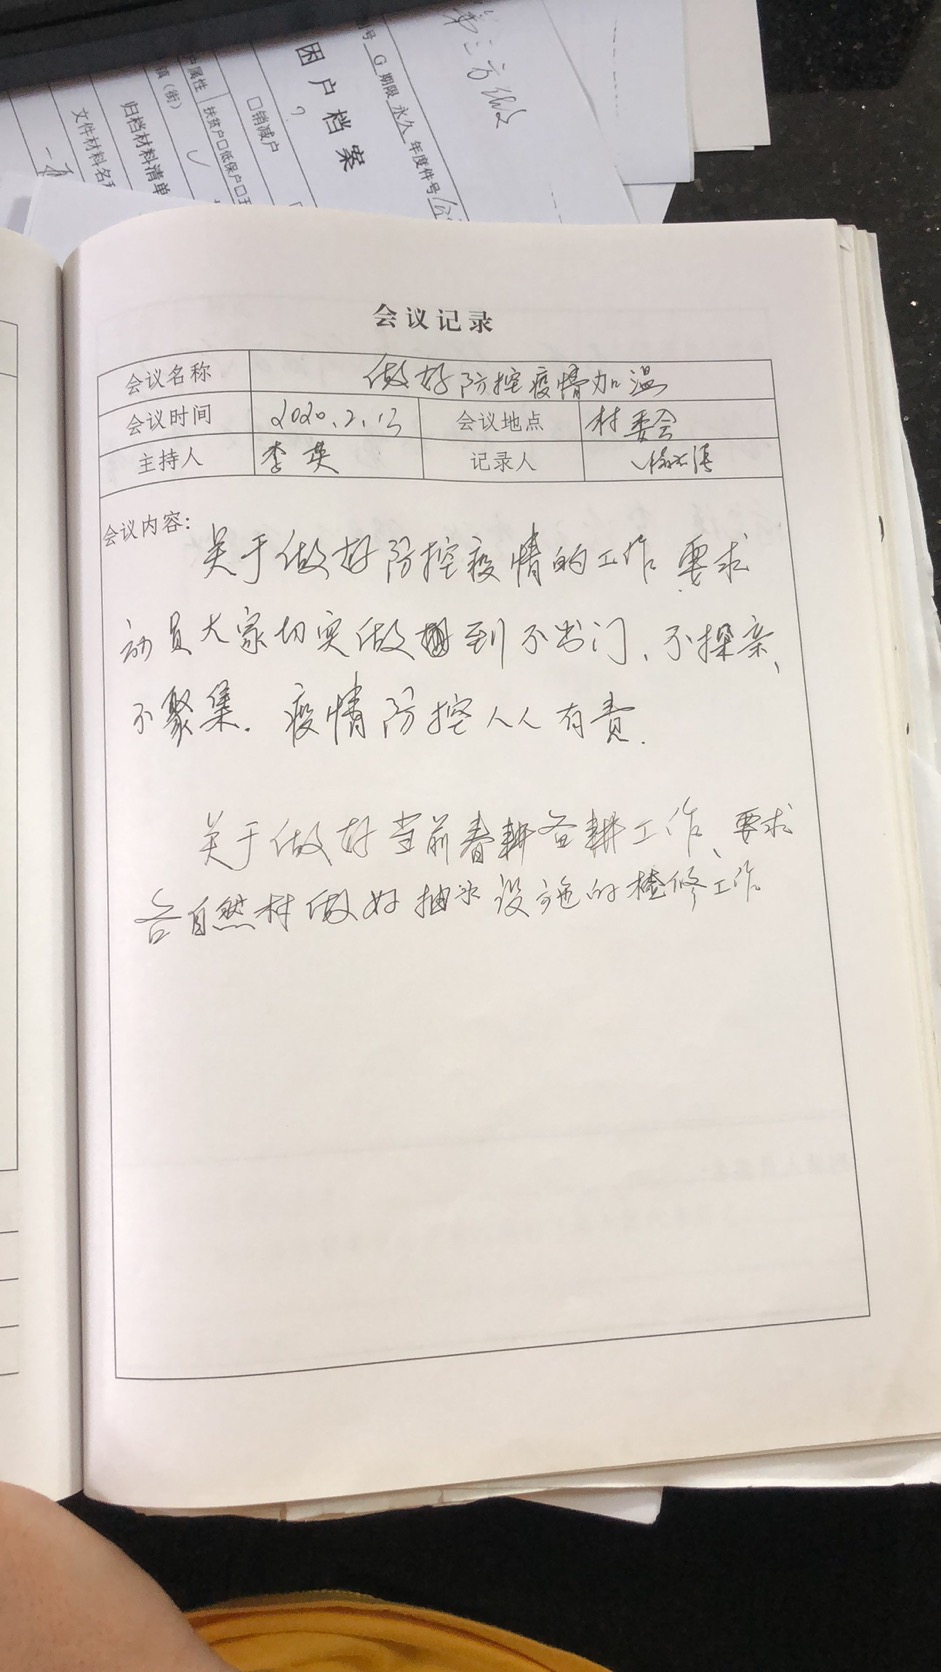 困户档案
号 G 期限 永久 年度件号
第三方做
□销减户
户属性 扶贫户□低保户□五
镇（街）
归档材料清单
文件材料名称
会议记录
会议名称 做好防控疫情加温
会议时间 2020.2.13 会议地点 村委会
主持人 李英 记录人
会议内容：
关于做好防控疫情的工作 要求
动员大家切实做到不出门、不探亲、
不聚集．疫情防控人人有责．
关于做好当前春耕备耕工作、要求
各自然村做好抽水设施的检修工作